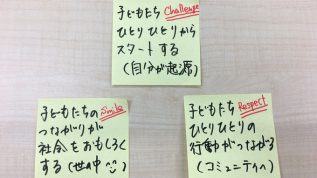 子どもたち Challenge
ひとりひとりから
スタートする
(自分が起源)
子どもたちの Smile
つながりが
社会をおもしろく
する(世の中
子どもたち Respect
ひとりひとりの
行動がつながる
(コミュニティへ)